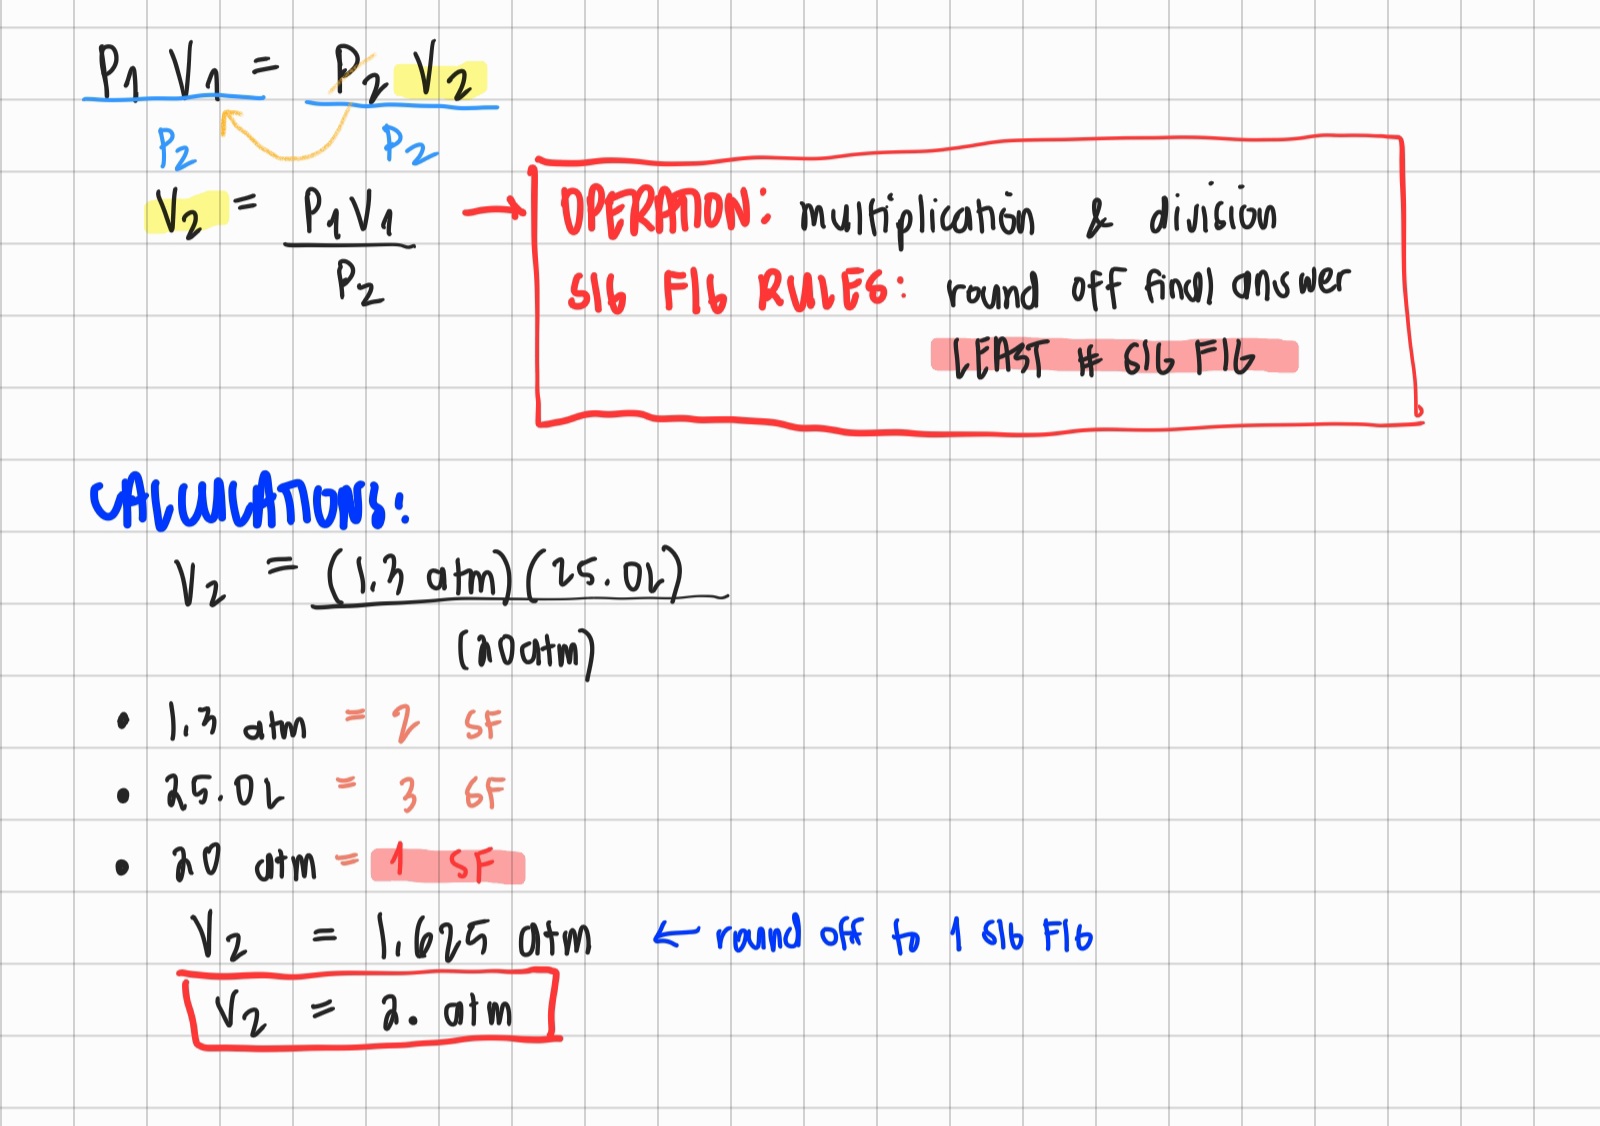 P₁ V₁ = P₂ V₂
P₂ P₂
V₂ = P₁V₁
P₂
OPERATION: multiplication & division
SIG FIG RULES: round off final answer
LEAST # SIG FIG
CALCULATIONS:
V₂ = (1.3 atm)(25.0L)
(20atm)
• 1.3 atm = 2 SF
• 25.0L = 3 SF
• 20 atm = 1 SF
V₂ = 1.625 atm ← round off to 1 SIG FIG
V₂ = 2. atm